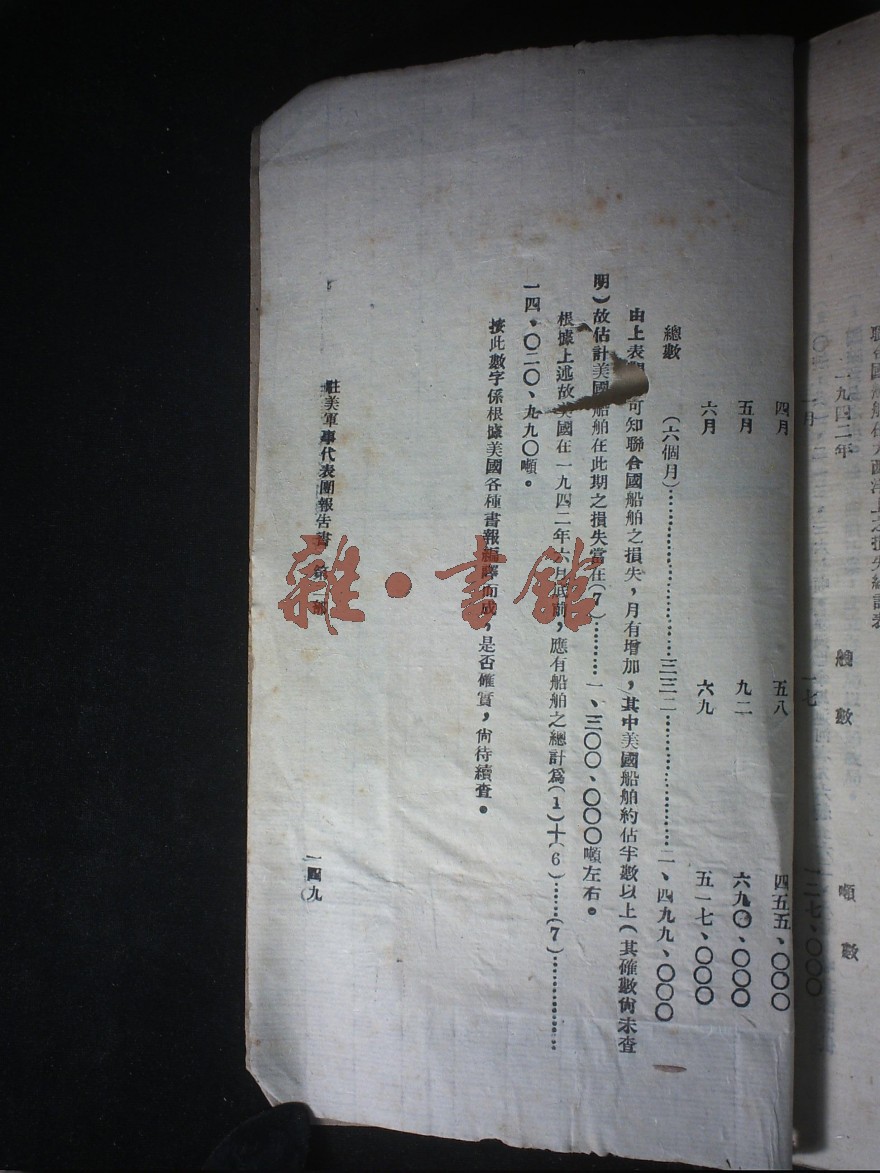 聯合國船舶在大西洋上之損失統計表
一九四二年 總數 噸數
四月 五八 四五五、〇〇〇
五月 九二 六九〇、〇〇〇
六月 六九 五一七、〇〇〇
總數 (六個月)……………………三三二……………………二、四九九、〇〇〇
由上表 可知聯合國船舶之損失，月有增加，其中美國船舶約佔半數以上(其確數尙未查
明)故估計美國船舶在此期之損失當在(7)…………一、三〇〇、〇〇〇噸左右。
根據上述故美國在一九四二年六月底前，應有船舶之總計爲(1)十(6)……(7)………………
一四、〇二〇、九九〇噸。
按此數字係根據美國各種書報編譯而成，是否確實，尙待續查。
駐美軍事代表團報告書 第 部
一四九
雜·書館